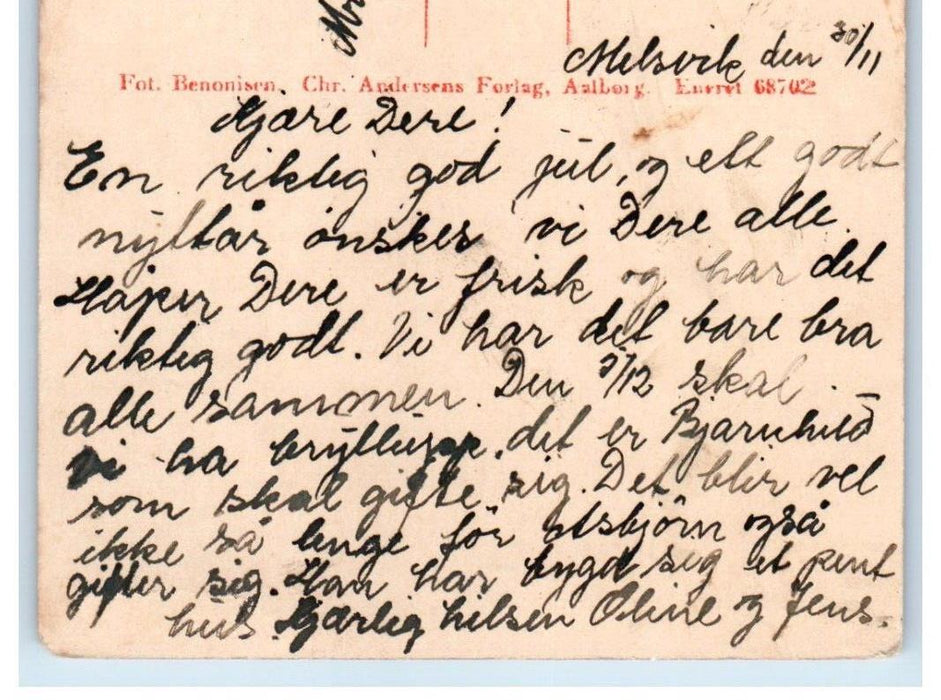 Melsvik den 30/11
Fot. Benonisen. Chr. Andersens Forlag, Aalborg. Eneret 68702
Kjære Dere!
En riktig god jul, og ett godt
nyttår ønsker vi Dere alle.
Håper Dere er frisk og har det
riktig godt. Vi har det bare bra
alle sammen. Den 7/12 skal
vi ha bryllupp, det er Bjarnhild
som skal gifte sig. Det blir vel
ikke så lenge før også
gifter sig. Han har bygd sig et pent
hus. Kjærlig helsen Oline og Jens.